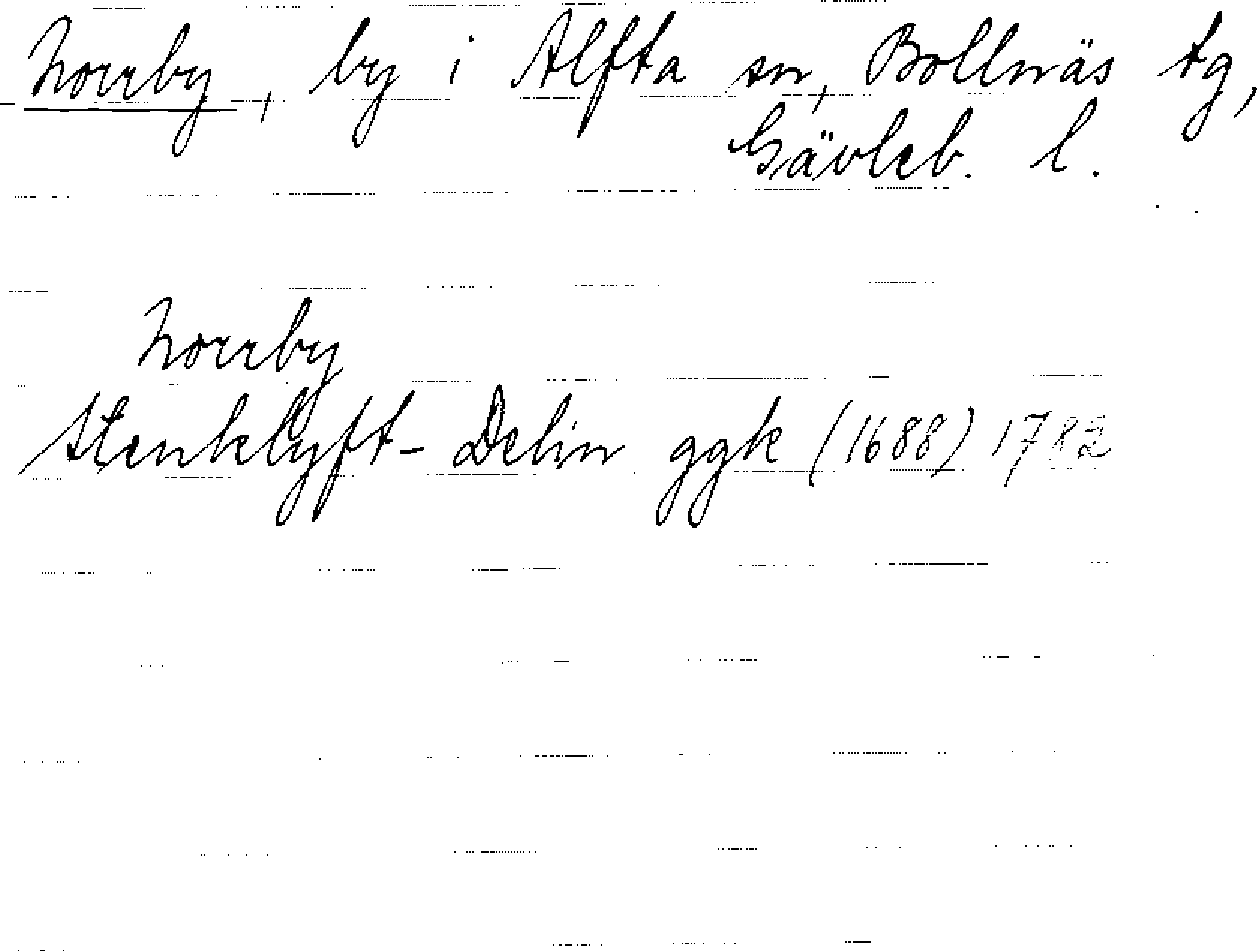 Norrby, by i Alfta sn, Bollnäs tg,
Gävleb. l.
Norrby
Stenklyft- Delin ggk (1688) 1782